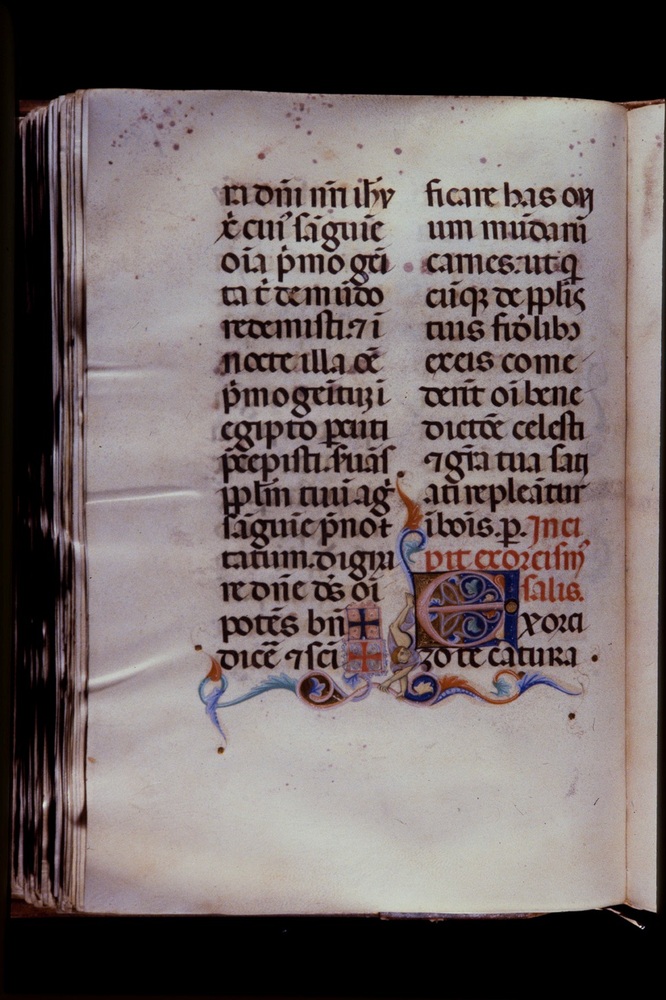 ri dñi nr̃i ih̃u
x̃ cui᾽ sãguie
oĩa p̃mogẽi
ta t̃ de mũdo
redemisti. ⁊ ĩ
nocte illa oẽ
p̃mogeitũ ĩ
egipto ꝑcuti
p̃cepisti. suãs
ppl̃m tuũ ag̃
sãguie p̃not
tatum. digna
re dñe ds̃ oĩ
potẽs bñ ✠
dicẽ ⁊ sc̃i ✠
ficare has oĩ
um mũdarũ
carnes. ut q̃
cũqꝫ de ppl̃is
tuis fidẽlibꝰ
ex eis come
derĩt oĩ bene
dictõe celesti
⁊ gr̃a tua sati
ati repleãtur
ĩ boĩs. ꝑ. Inci
pit exorcism᾽
salis.
Exorci
zo te c̃atura